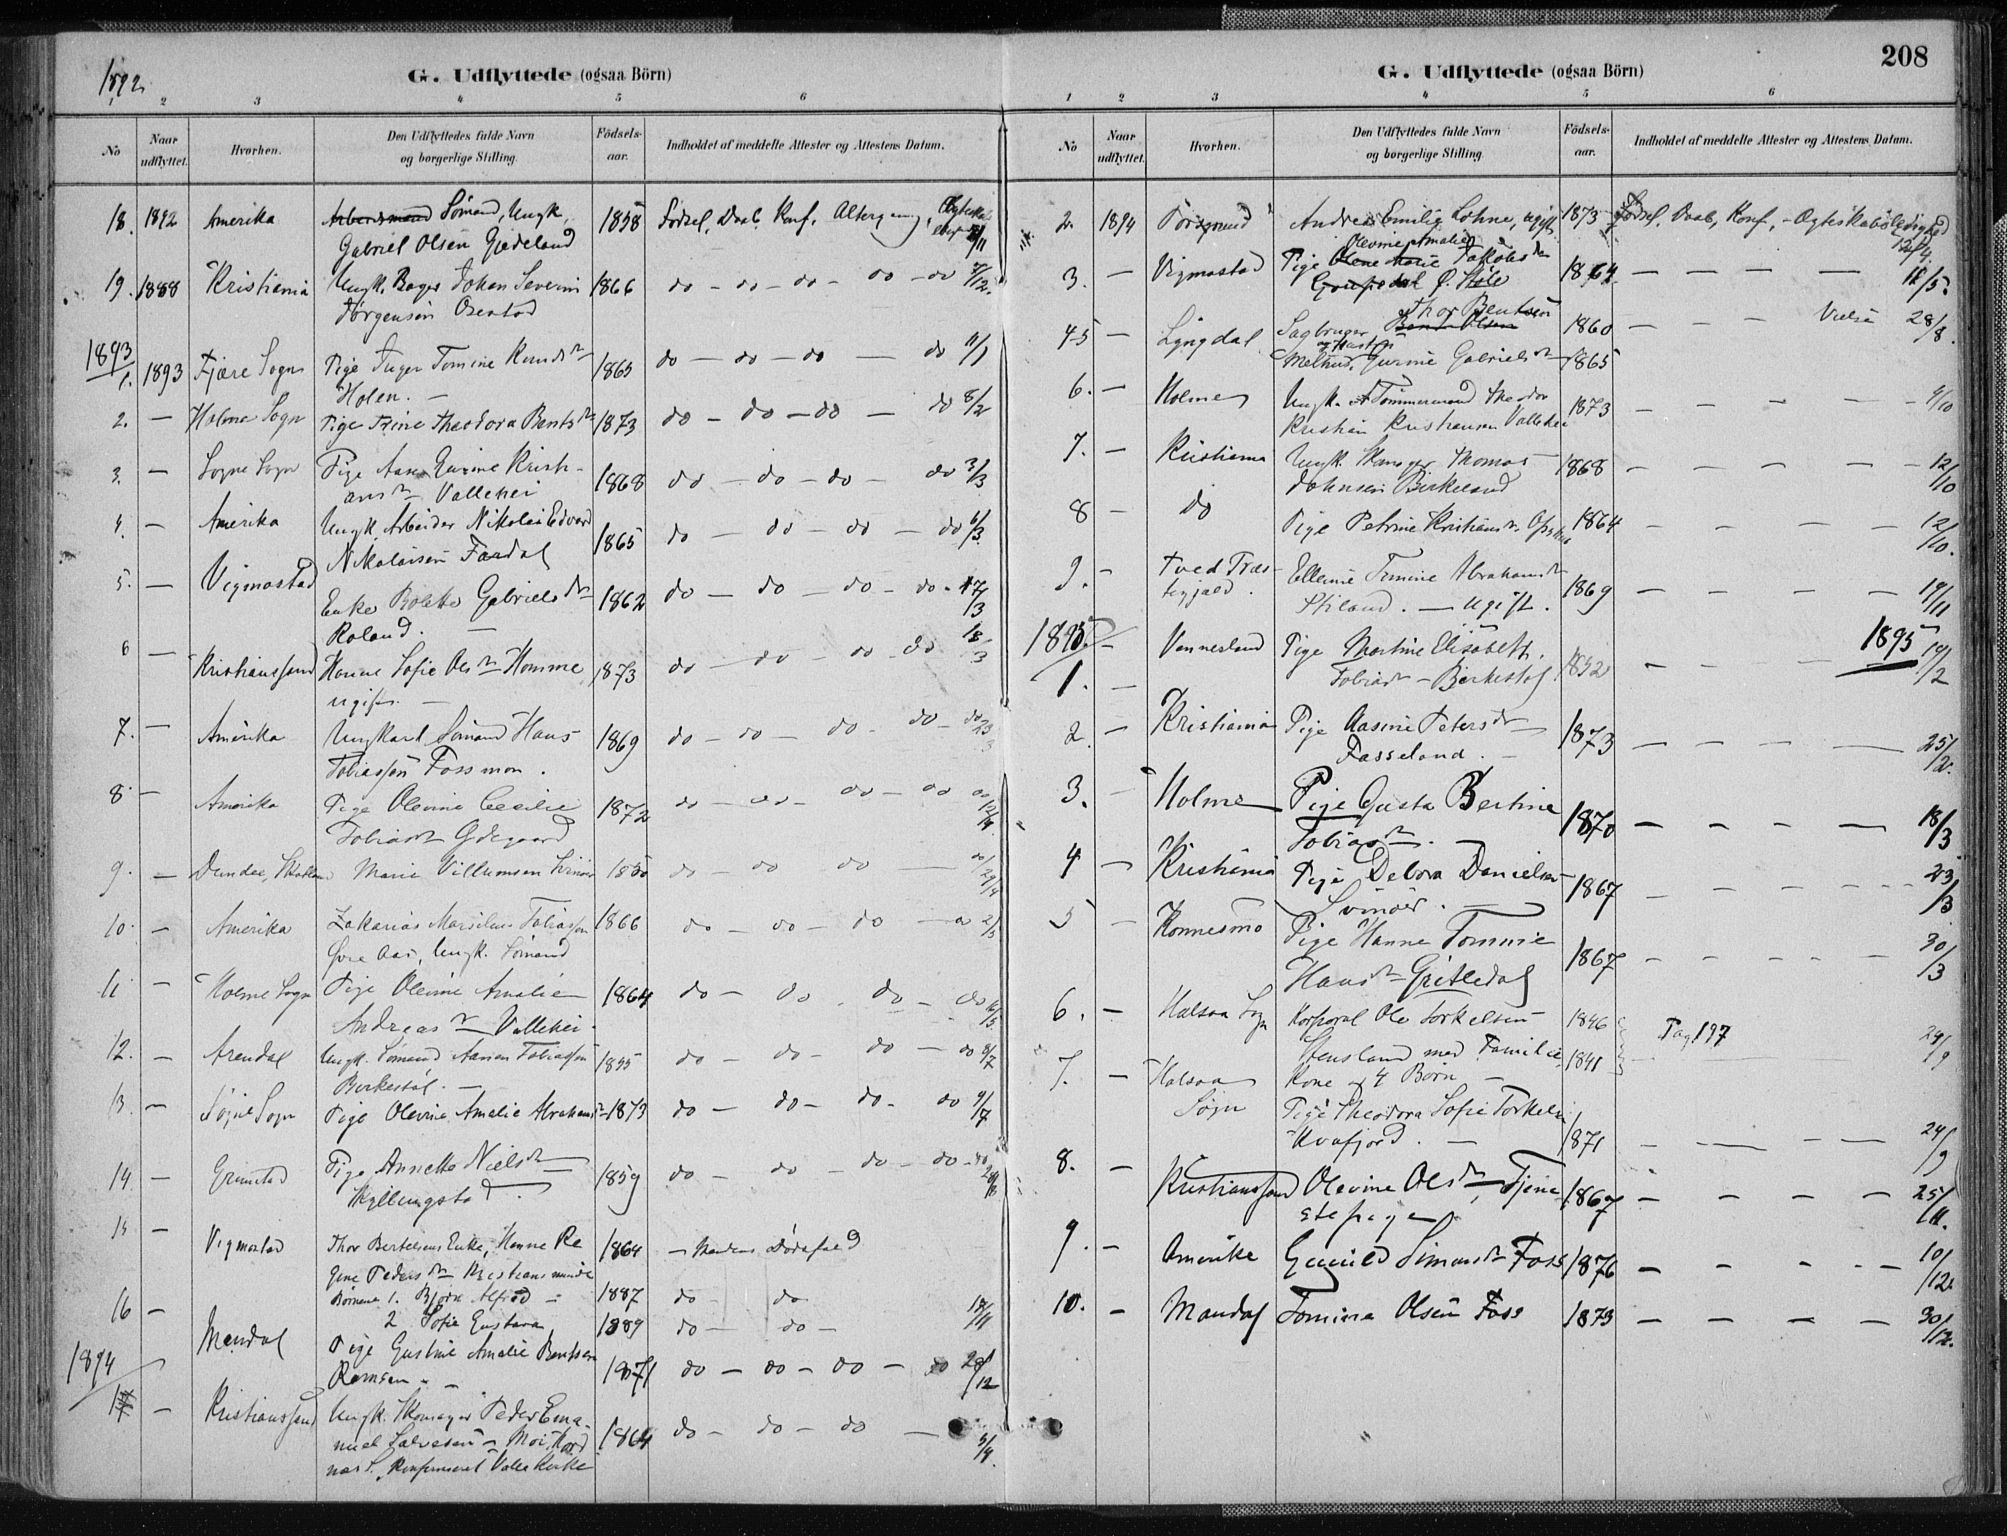 1892
G. Udflyttede (ogsaa Börn)
1 2 3 4 5 6
No
Naar udflyttet.
Hvorhen.
Den Udflyttedes fulde Navn og borgerlige Stilling.
Födsels-aar.
Indholdet af meddelte Attester og Attestens Datum.
18. 1892 Amerika Arbeidsmand Sömand, Ungk. 1858 Födsel, Daab, Konf. Altergang,
Gabriel Olsen Gjedeland
19. 1888 Kristiania Ungk. Bager Johan Severin 1866 do - do - do - do - do 7/12.
Jörgensen Osestad
1893
1. 1893 Fjære Sogn Pige Inger Tomine Knudsdr 1865 do - do - do - do 11/1
Holen. -
2. - Holme Sogn Pige Trine Theodora Bentsdr 1873 do - do - do - do 8/2
3. - Sogne Sogn Pige Aane Eurine Kristi- 1868 do - do - do - do 3/3
ansdr Vallehei
4. - Amerika Ungk. Arbeider Nikolai Edvard 1865 do - do - do - do 6/3.
Nikolaisen Fardal
5. - Vigmostad Enke Bolette Gabrielsdr 1862 do - do - do - do - 17/3
Roland. -
6 - Kristianssand Hanne Sofie Olsdr Homme 1873 do - do - do - do 18/3
ugift. -
7. - Amerika Ungkarl Sömand Hans 1869 do - do - do - do - do 23/3
Tobiassen Fossmon.
8 - Amerika Pige Olevine Cecilie 1872 do - do - do - do do 12/4
Tobiasdr Ödegaard
9. - Dundee, Skotland Marie Villumsen Svinöer 1850 do - do do - do 29/4
10. - Amerika Zakarias Marselius Tobiassen 1866 do - do - do - do 2/5
Övre Aas, Ungk. Sömand
11 - Holme Sogn Pige Olevine Amalie 1864 do - do - do - do 16/5
Andreasdr Vallehei.
12. - Arendal Ungk. Sömand Aanen Tobiassen 1855 do - do - do - do 8/7
Birkestöl. -
13. - Sögne Sogn Pige Olevine Amalie Abrahamsdr 1873 do - do - do - do 9/7
14. - Grimstad Pige Annette Nielsdr 1859 do - do - do - do - do
Skyllingstad.
15 - Vigmostad Thor Bertelsens Enke, Hanne Re 1864 - Mandens Dödsfald
gine Pedersdr Kristiansminde
Börnene 1. Bjorn Alfred - 1887 do - do
2 Sofie Gustava 1889 do - do - 17/11
16 - Mandal Pige Gustine Amalie Bentsen 1871 do - do - do - do 28/12
Ramsen. -
1894
1 - Kristianssand Ungk. Skomager Peder Ema- 1864 do - do - do - 5/4.
nuel Salvesen - Moi, Hord
næs S. Konfirmeret Valle Kirke
208
G. Udflyttede (ogsaa Börn)
1 2 3 4 5 6
No
Naar udflyttet.
Hvorhen.
Den Udflyttedes fulde Navn og borgerlige Stilling.
Födsels-aar.
Indholdet af meddelte Attester og Attestens Datum.
2. 1894 Porsgrund Andrea Emilie Lohne, ugift 1873 Födsel, Daab, Konf. - Ægteskabsledighed 12/4.
Olevine Amalie
3. - Vigmostad Pige Olene Marie Jakobsdr 1864 - - - - 11/5.
Ö. Stöle
Thor Bentsen
4-5 - Lyngdal Sagbruger, Bent Olsen 1860 - - - Vielse 28/8.
og Hustru
Malthus, Gurine Gabrielsdr 1865
6. - Holme Ungk. Tömmermand Theodor 1873 - - - - 4/10
Kristian Kristiansen Vallehei
7. - Kristiania Ungk. Skomager Thomas 1868 - - - - 12/10
Johnsen Birkeland
8 - do Pige Petrine Kristiansdr 1864 - - - - 12/10.
9. - Tved Præstegjæld. Ellevine Tomine Abrahamsdr 1869 - - - - 19/11
Stiland. - Ugift.
1895. 1895
1. - Vennesland Pige Martine Elisabeth. 1852 - - - 19/2
Tobiasdr - Birkestöl
2. - Kristiania Pige Aasine Petersdr 1873 - - - - 25/2.
Fasseland. -
3. - Holme Pige Gusta Bertine 1870 - - - - 18/3
Tobiasdr. -
4 - Kristiania Pige Debora Danielsen 1867 - - - - 23/3
Svinöer. -
5 - Konnesmo Pige Hanne Tomine 1867 - - - - 30/3
Hansdr Gritledal
6. - Halsaa Sogn Korporal Ole Torkelsen 1846 Pag. 197 24/9
Stensland med Familie, 1841
Kone og 4 Börn -
7. - Halsaa Sogn Pige Theodora Sofie Torkelsen 1871 - - - - 24/9
Uvafjord. -
8. - Kristianssand Olevine Olsdr Tjene- 1867 - - - - 25/11.
stepige
9. - Amerika Gunild Simonsdr Foss 1876 - - - - 10/12.
10. - Mandal Tomine Olsen Foss 1873 - - - - 30/12.